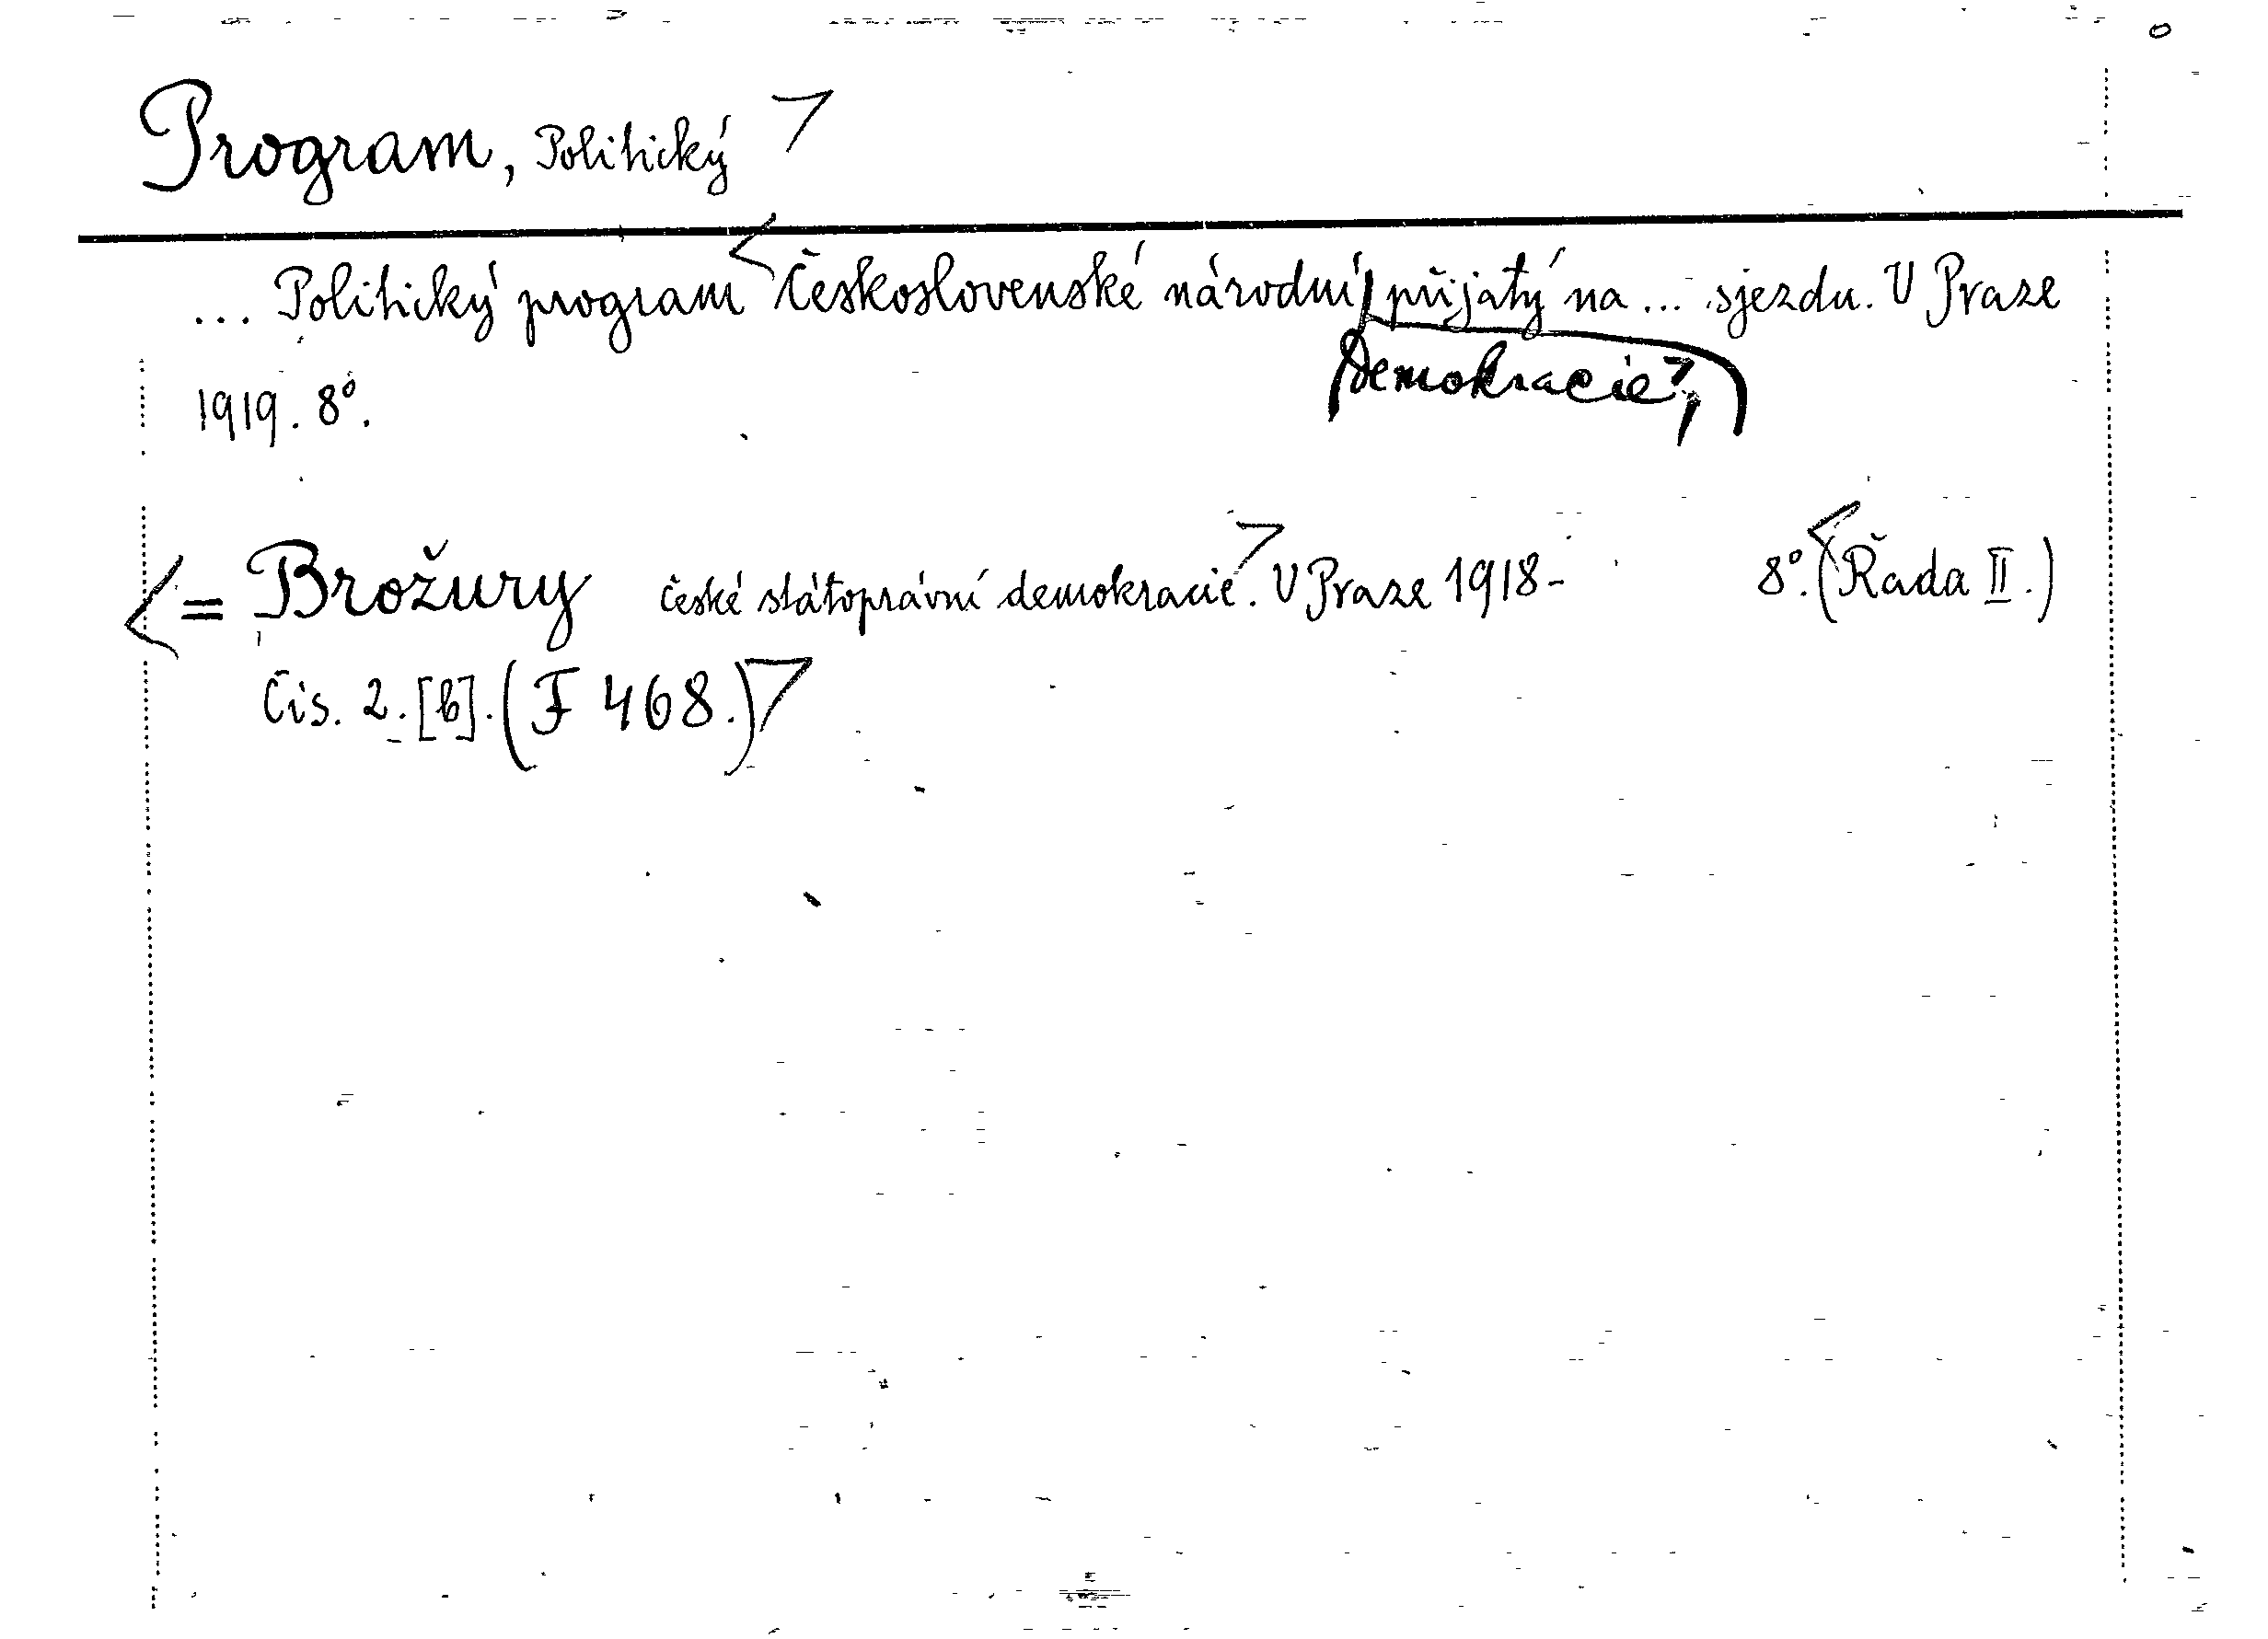 Program, Politický >
... Politický program < Československé národní přijatý na ... sjezdu. V Praze
Demokracie >,
1919. 8°.
< = Brožury české státoprávní demokracie >. V Praze 1918- 8°. < (Řada II.)
Čís. 2. [b]. (F 468.) >